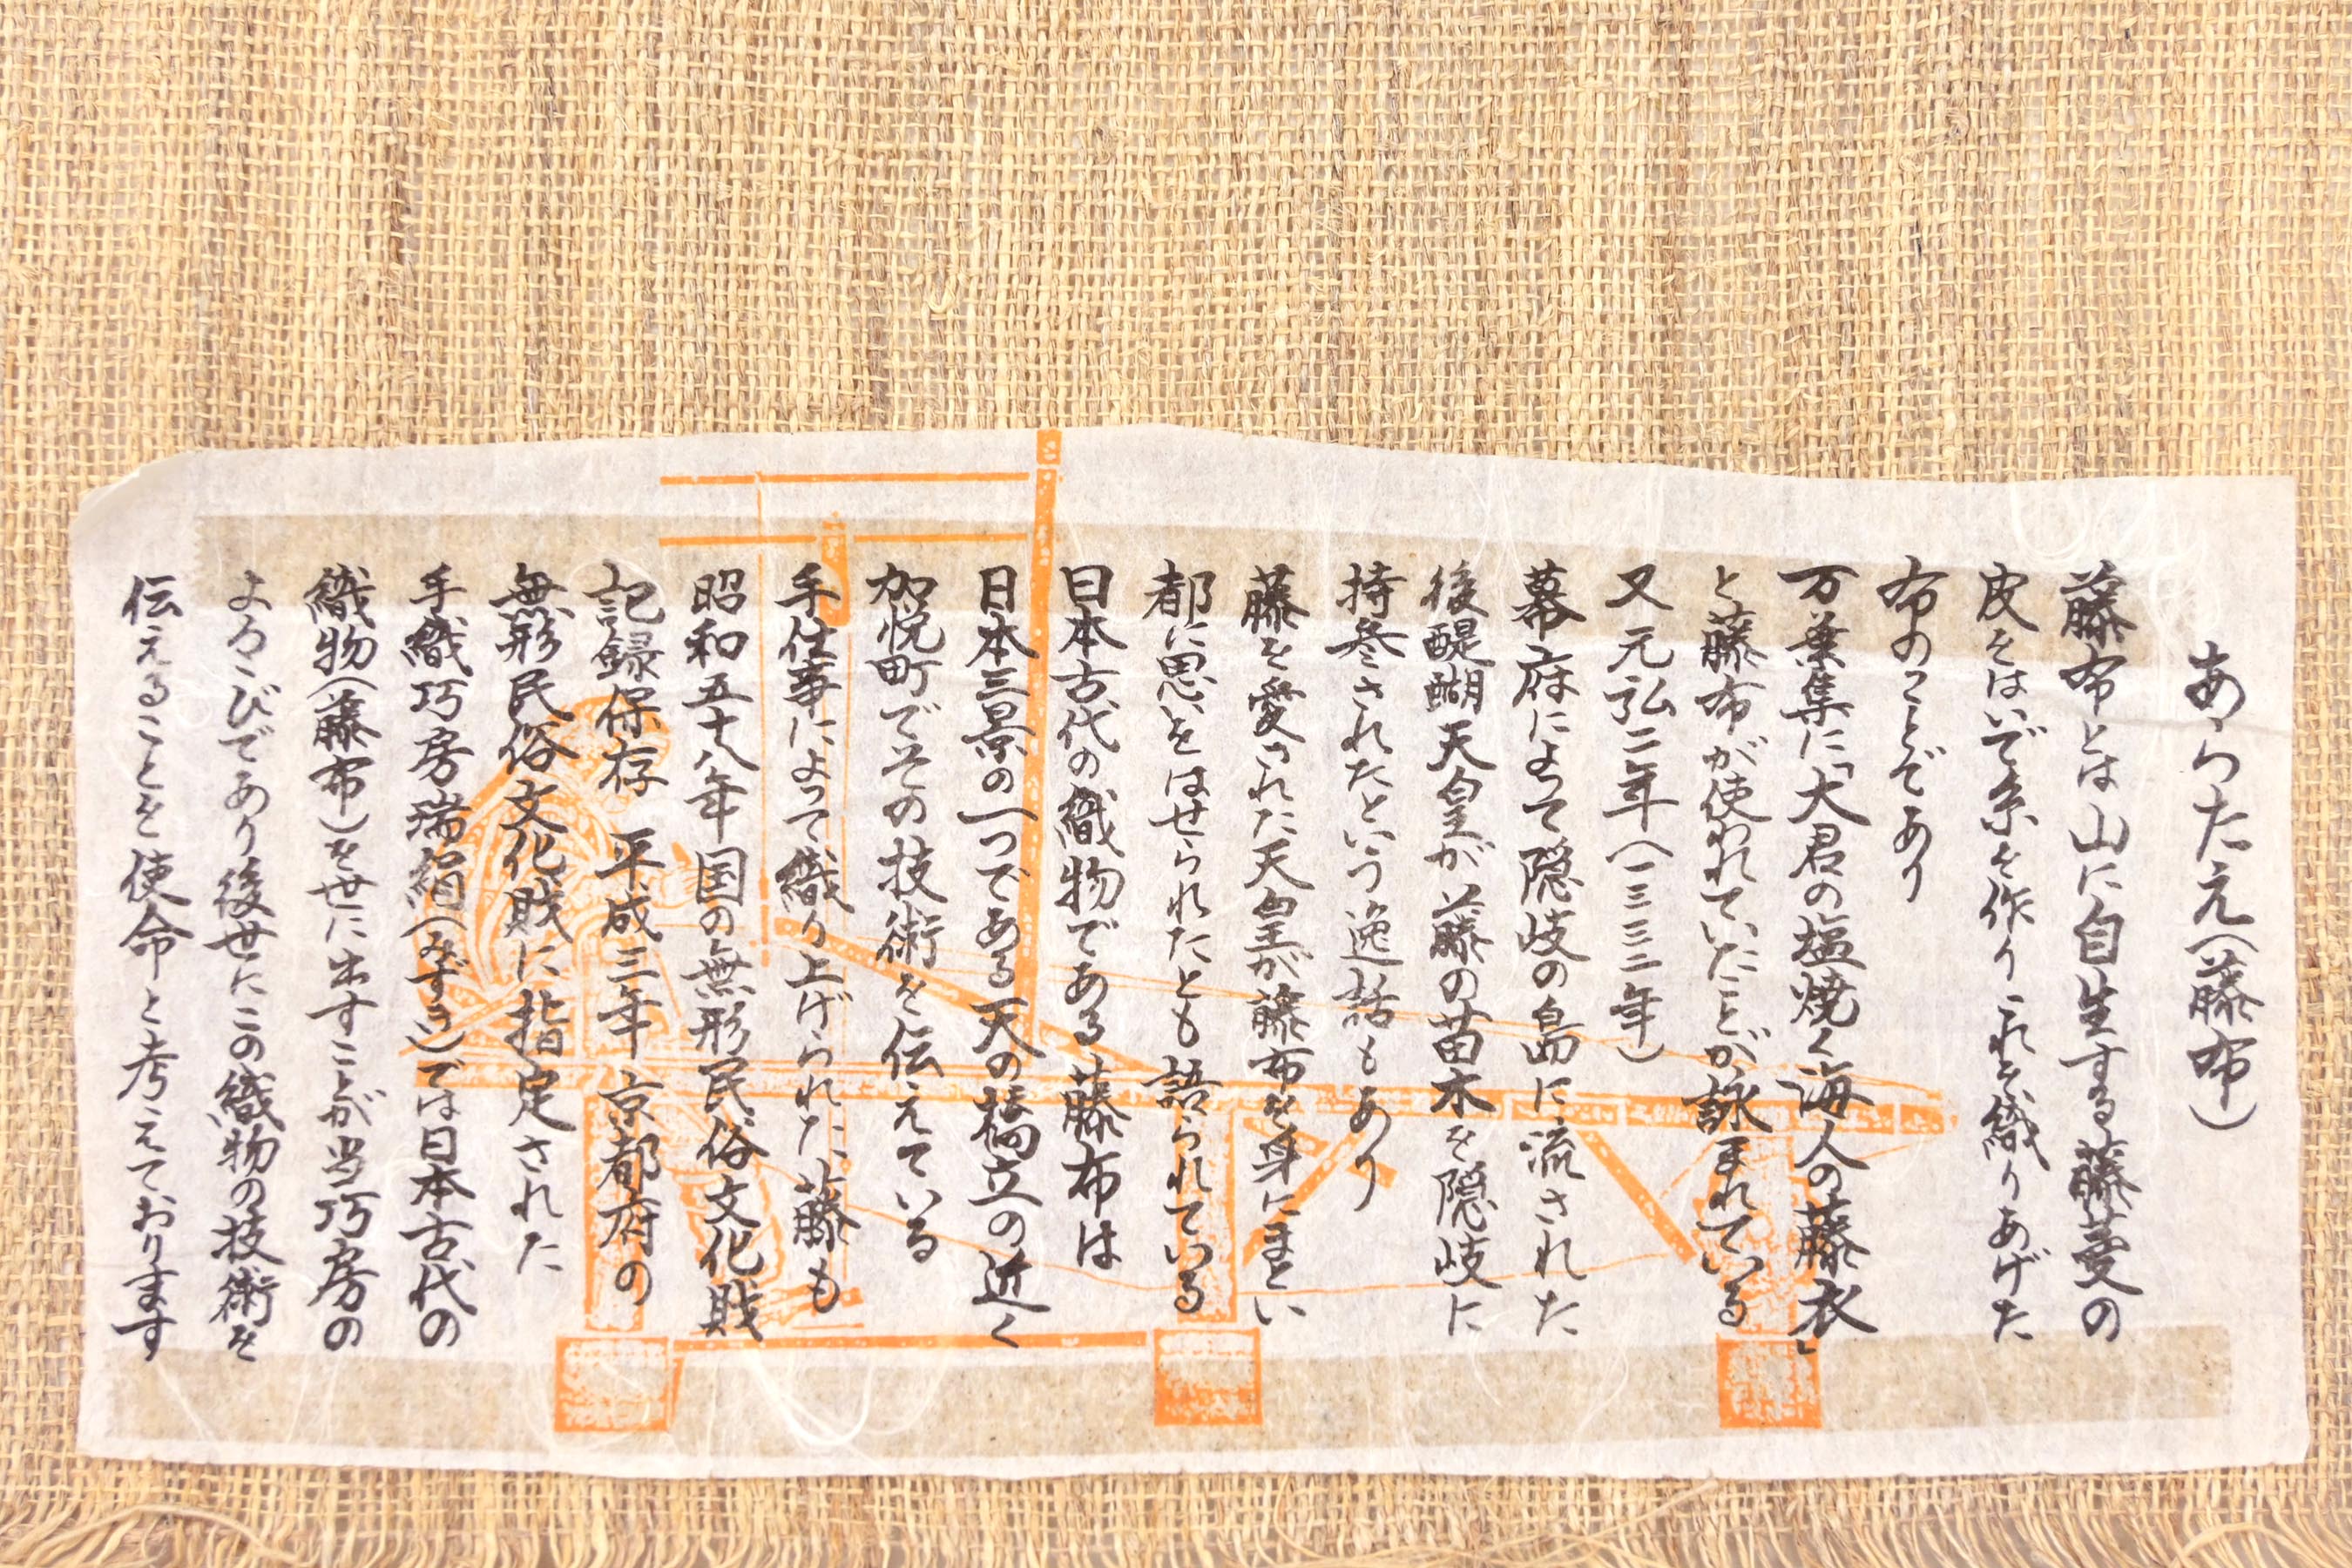 あらたえ（藤布）
藤布とは山に自生する藤蔓の
皮をはいで糸を作りこれを織りあげた
布のことであり
万葉集に「大君の塩焼く海人の藤衣」
と藤布が使われていたことが詠まれている
又元弘二年（一三三二年）
幕府によって隠岐の島に流された
後醍醐天皇が藤の苗木を隠岐に
持参されたという逸話もあり
藤を愛された天皇が藤布を身にまとい
都に思をはせられたとも語られている
日本古代の織物である藤布は
日本三景の一つである天の橋立の近く
加悦町でその技術を伝えている
手仕事によって織り上げられた藤も
昭和五十八年国の無形民俗文化財
記録保存 平成三年京都府の
無形民俗文化財に指定された
手織巧房瑞絹（みずき）では日本古代の
織物（藤布）を世に出すことが当巧房の
よろこびであり後世にこの織物の技術を
伝えることを使命と考えております